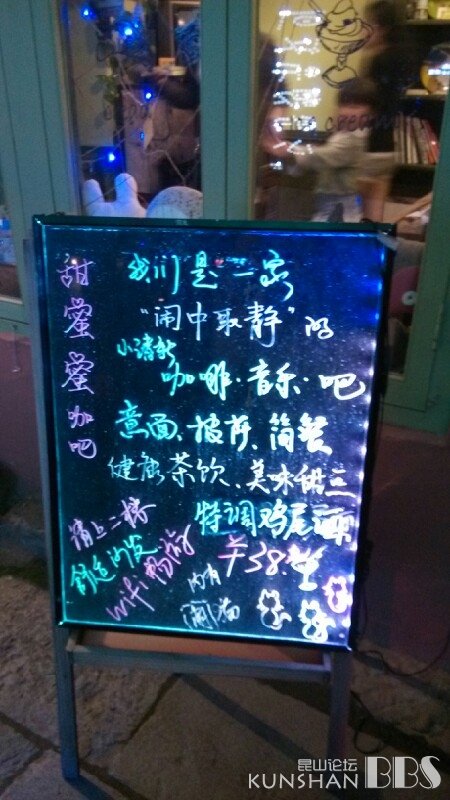 甜蜜蜜咖吧
我们是一家
"闹中取静"的
小清新
咖啡·音乐·吧
意面、披萨、简餐
健康茶饮、美味甜点
特调鸡尾酒
¥38.
请上二楼
舒适沙发
wifi 畅游
内有
闹猫
cream
昆山论坛
KUNSHAN BBS